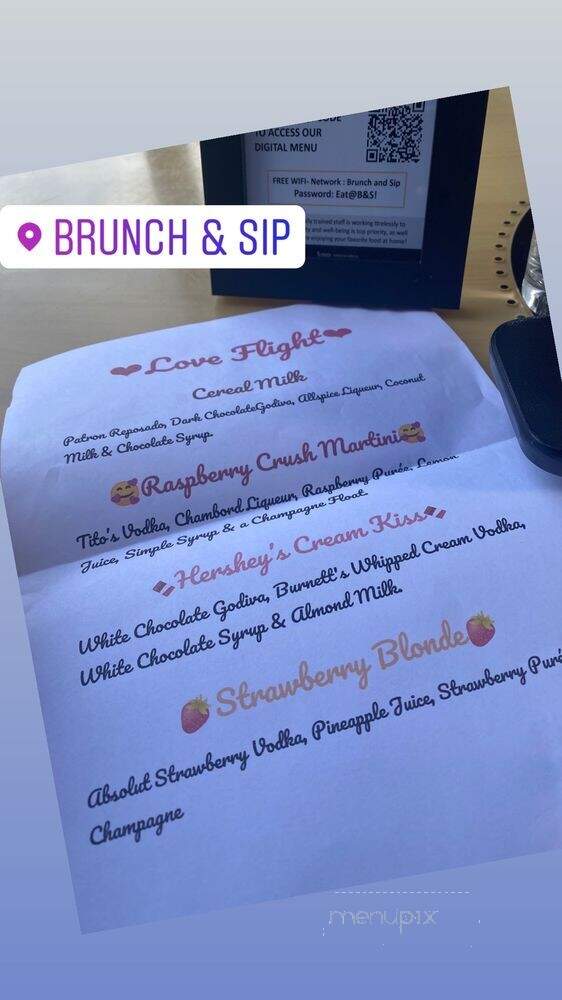 TO ACCESS OUR
DIGITAL MENU
FREE WIFI- Network : Brunch and Sip
Password: Eat@B&S!
trained staff is working tirelessly to
and well-being is top priority, as well
enjoying your favorite food at home!
BRUNCH & SIP
Love Flight
Cereal Milk
Patron Reposado, Dark ChocolateGodiva, Allspice Liqueur, Coconut
Milk & Chocolate Syrup.
Raspberry Crush Martini
Tito's Vodka, Chambord Liqueur, Raspberry Purée, Lemon
Juice, Simple Syrup & a Champagne Float.
Hershey's Cream Kiss
White Chocolate Godiva, Burnett's Whipped Cream Vodka,
White Chocolate Syrup & Almond Milk.
Strawberry Blonde
Absolut Strawberry Vodka, Pineapple Juice, Strawberry Puré
Champagne
menupix